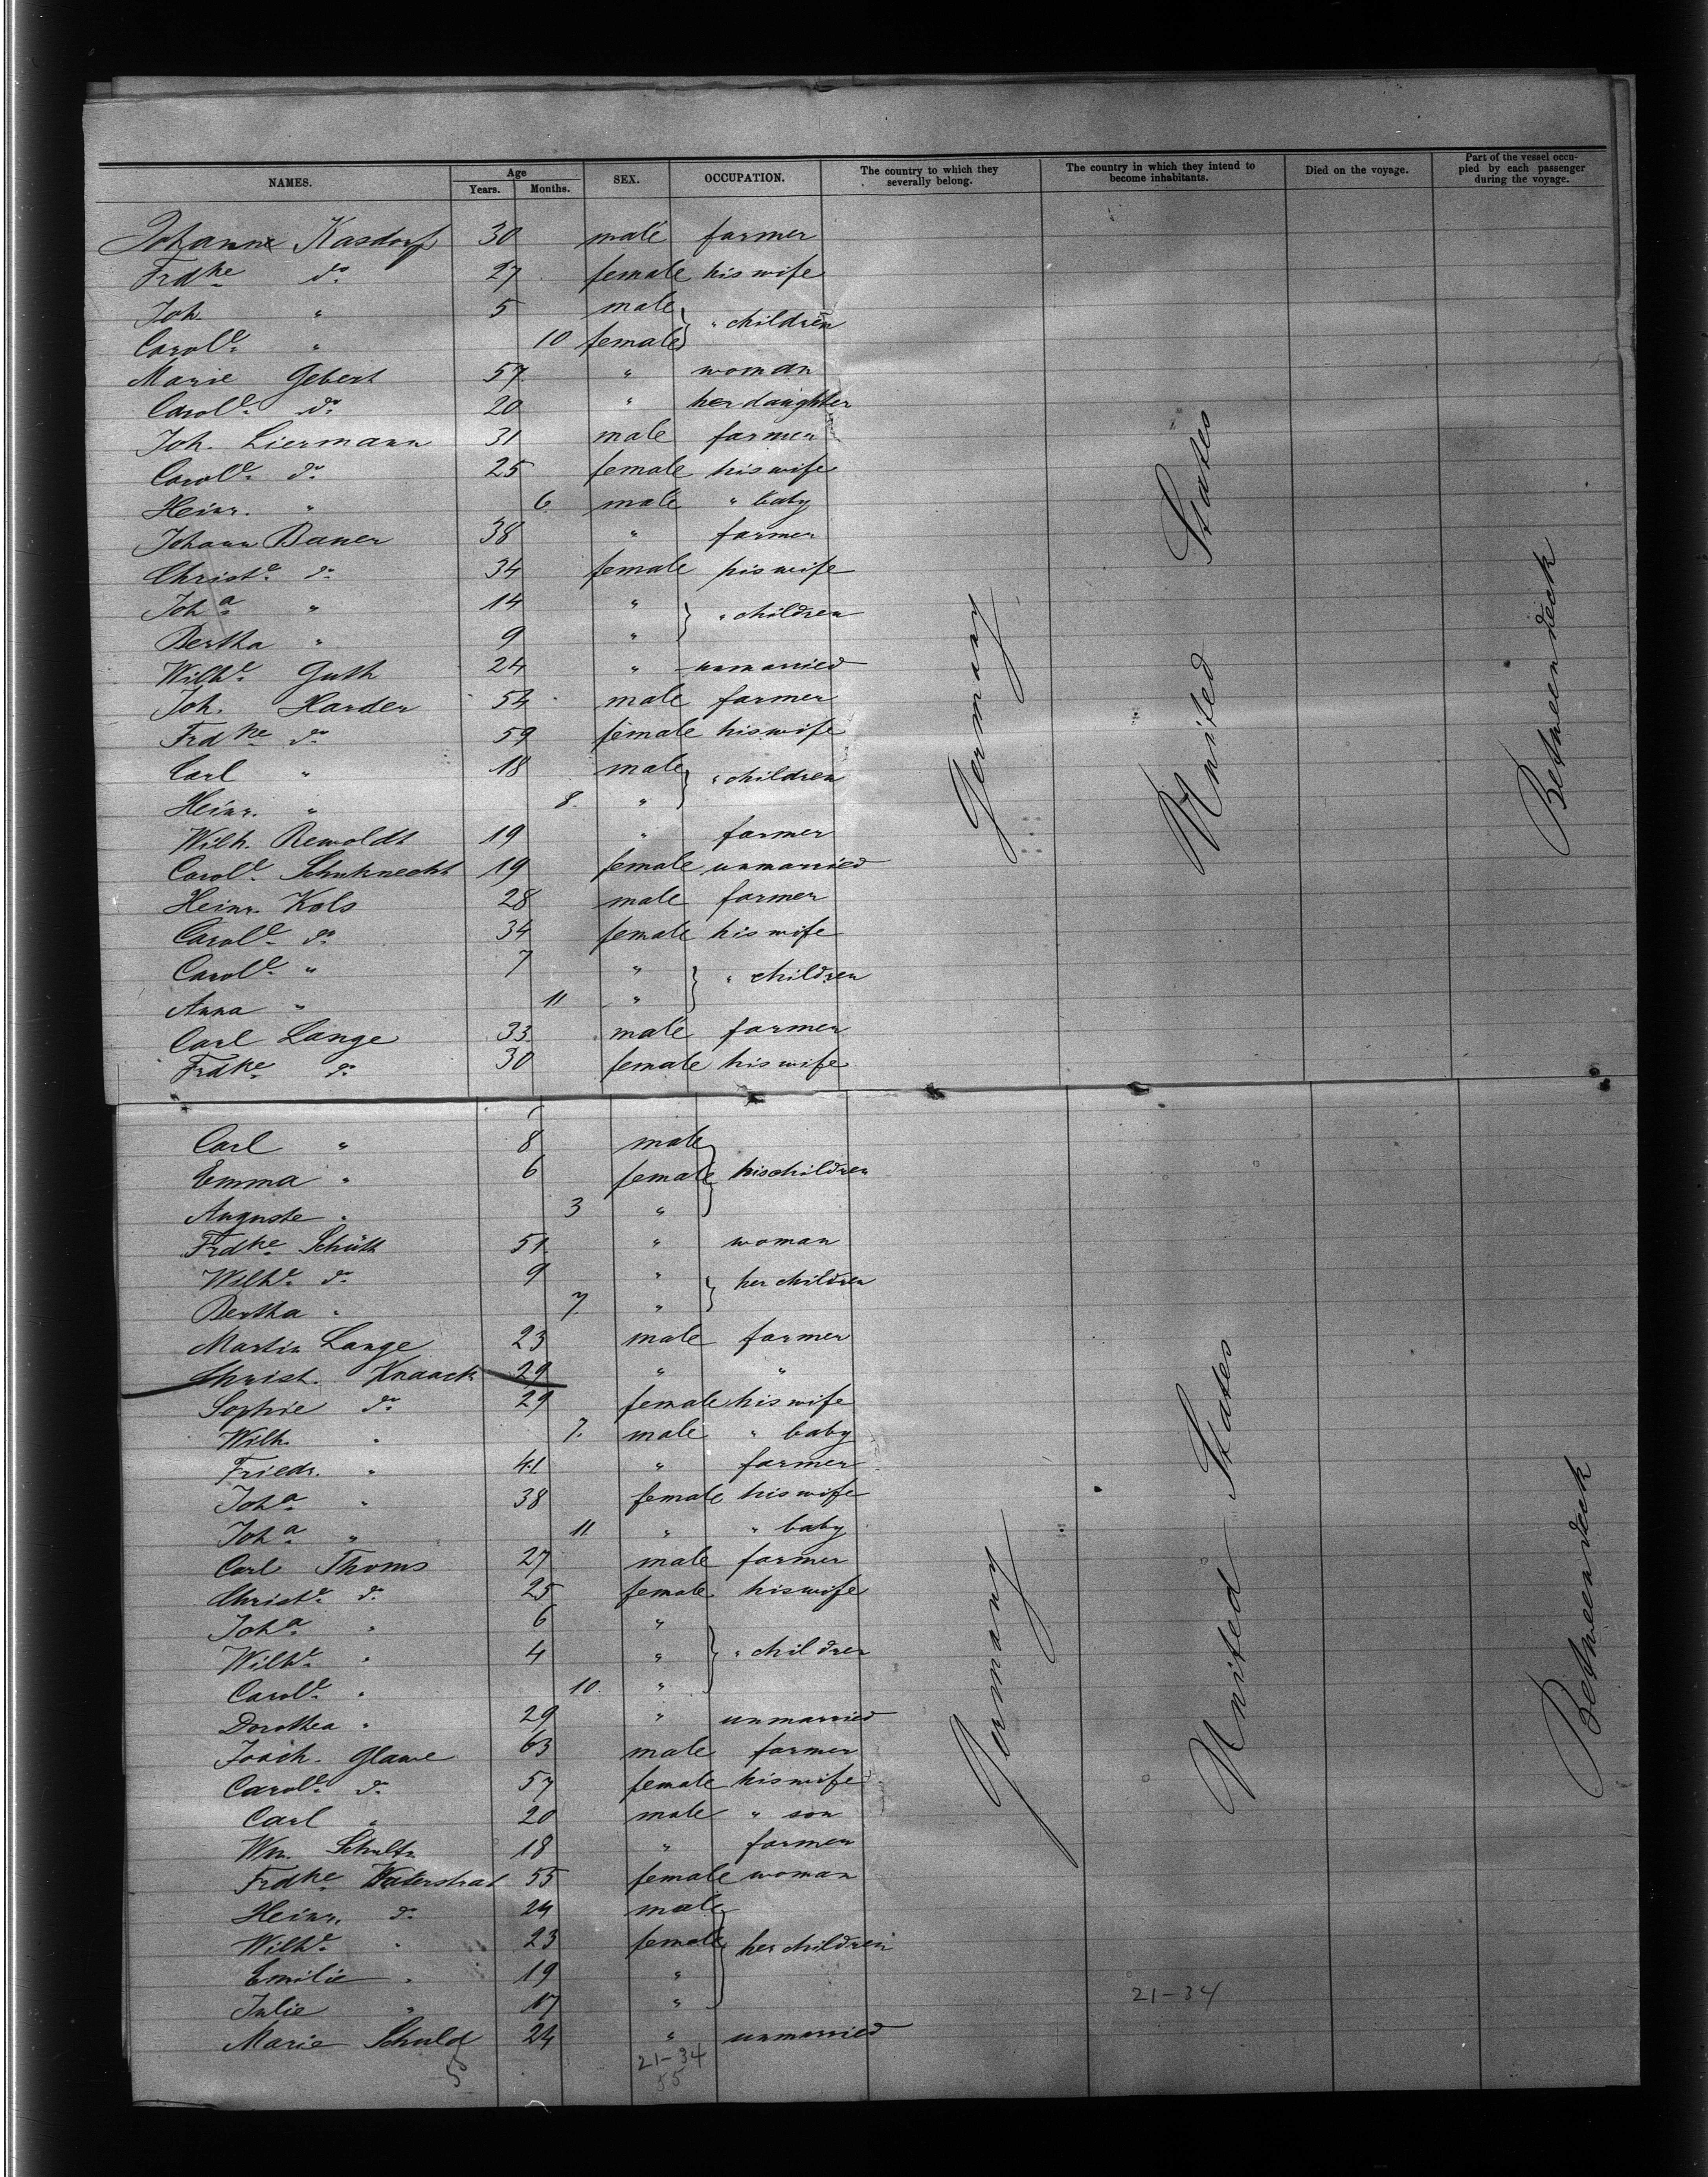 NAMES. Age Years. Months. SEX. OCCUPATION. The country to which they severally belong. The country in which they intend to become inhabitants. Died on the voyage. Part of the vessel occupied by each passenger during the voyage.
Johann Kasdorf 30 male farmer
Frdke do 27 female his wife
Joh " 5 male
" children
Carole " 10 female
Marie Gebert 57 " woman
Carole do 20 " her daughter
Joh. Liermann 31 male farmer
Carole do 25 female his wife
Heinr. " 6 male " baby
Johann Bauer 38 " farmer
Christe do 34 female his wife
Joha " 14 " " children
Bertha " 9 "
Wilhe Guth 24 " unmarried
Joh. Harder 54 male farmer
Frdke do 59 female his wife
Carl " 18 male " children
Heinr. " 8 "
Wilh. Rewoldt 19 " farmer
Carole Schuknecht 19 female unmarried
Heinr. Kols 28 male farmer
Carole do 34 female his wife
Carole " 7 " " children
Anna " 11 "
Carl Lange 33 male farmer
Frdke do 30 female his wife
Germany
United States
Between deck
Carl " 8 male
Emma " 6 female his children
Auguste " 3 "
Frdke Schütt 51 " woman
Wilhe do 9 " her children
Bertha " 7 "
Martin Lange 23 male farmer
Christ. Knaack 29 " "
Sophie do 29 female his wife
Wilh. " 7 male " baby
Friedr. " 41 " farmer
Joha " 38 female his wife
Joha " 11 " " baby
Carl Thoms 27 male farmer
Christe do 25 female his wife
Joha " 6 "
Wilhe " 4 " " children
Carole " 10 "
Dorothea " 29 " unmarried
Joach. Glawe 63 male farmer
Carole do 57 female his wife
Carl " 20 male " son
Wm. Schultz 18 " farmer
Frdke Waterstrat 55 female woman
Heinr. do 24 male
Wilhe " 23 female her children
Emilie " 19 "
Julie " 17 "
Marie Schuld 24 " unmarried
Germany
United States
Between deck
21-34
55
21-34
55